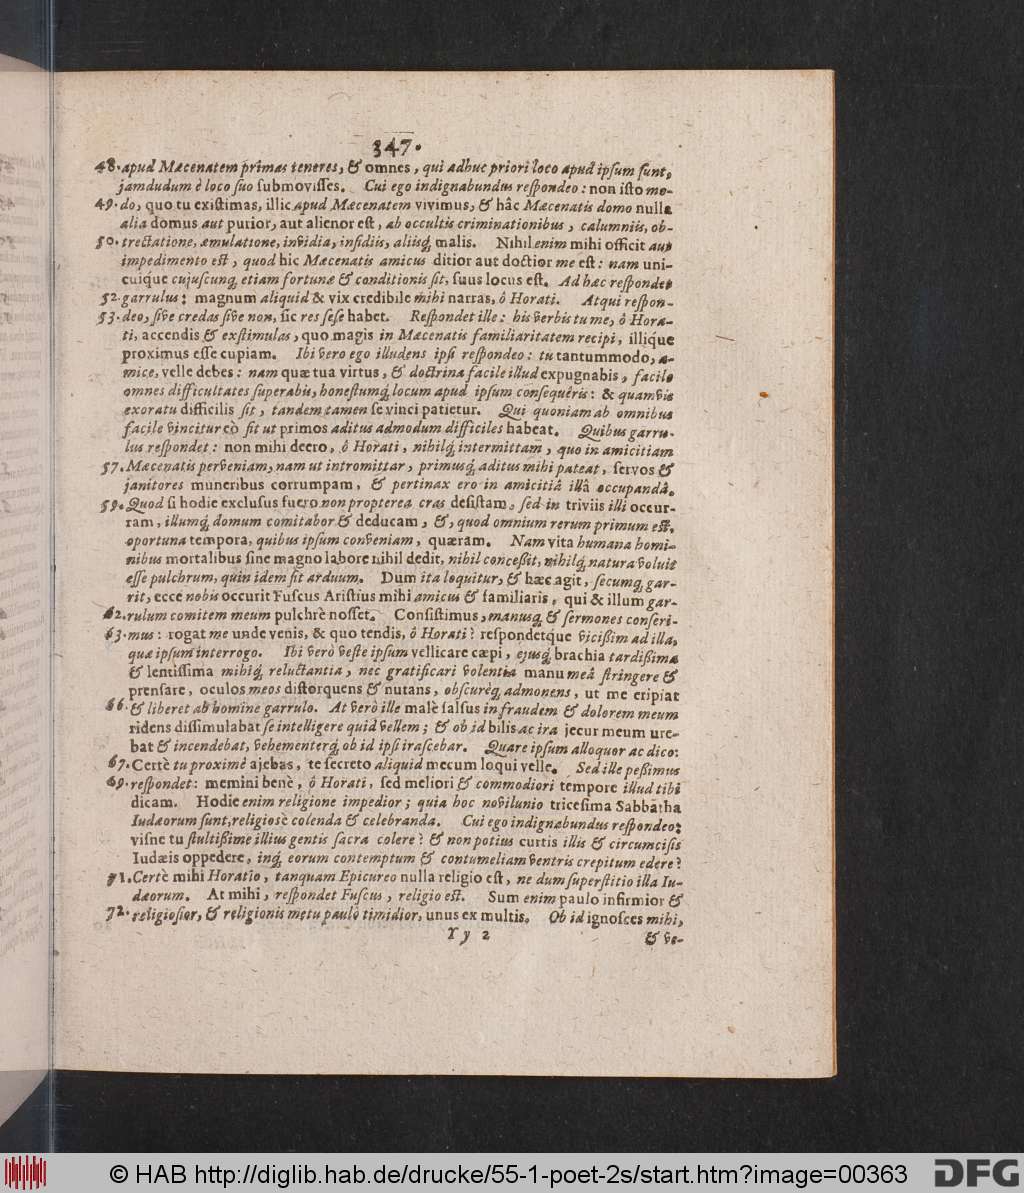 347.
48. apud Mæcenatem primas teneres, & omnes, qui adhuc priori loco apud ipsum sunt,
jamdudum è loco suo submovisses. Cui ego indignabundus respondeo: non isto mo-
49. do, quo tu existimas, illic apud Mæcenatem vivimus, & hâc Mæcenatis domo nulla
alia domus aut purior, aut alienor est, ab occultis criminationibus, calumniis, ob-
50. trectatione, æmulatione, invidia, insidiis, aliisq́ malis. Nihil enim mihi officit aut
impedimento est, quod hic Mæcenatis amicus ditior aut doctior me est: nam uni-
cuique cujuscunq́, etiam fortunæ & conditionis sit, suus locus est. Ad hæc respondet
52. garrulus: magnum aliquid & vix credibile mihi narras, ô Horati. Atqui respon-
53. deo, sive credas sive non, sic res sese habet. Respondet ille: his verbis tu me, ô Hora-
ti, accendis & exstimulas, quo magis in Mæcenatis familiaritatem recipi, illiq́ue
proximus esse cupiam. Ibi vero ego illudens ipsi respondeo: tu tantummodo, a-
mice, velle debes: nam quæ tua virtus, & doctrina facile illud expugnabis, facile
omnes difficultates superabis, honestumq́, locum apud ipsum consequêris: & quamvis
exoratu difficilis sit, tandem tamen se vinci patietur. Qui quoniam ab omnibus
facile vincitur eò fit ut primos aditus admodum difficiles habeat. Quibus garru-
lus respondet: non mihi deero, ô Horati, nihilq́, intermittam, quo in amicitiam
57. Mæcenatis perveniam, nam ut intromittar, primusq́, aditus mihi pateat, servos &
janitores muneribus corrumpam, & pertinax ero in amicitiâ illâ occupandâ.
59. Quod si hodie exclusus fuero non propterea cras desistam, sed in triviis illi occur-
ram, illumq́, domum comitabor & deducam, &, quod omnium rerum primum est,
oportuna tempora, quibus ipsum conveniam, quæram. Nam vita humana homi-
nibus mortalibus sine magno labore nihil dedit, nihil concessit, nihilq́, natura voluit
esse pulchrum, quin idem sit arduum. Dum ita loquitur, & hæc agit, secumq́, gar-
rit, ecce nobis occurit Fuscus Aristius mihi amicus & familiaris, qui & illum gar-
62. rulum comitem meum pulchrè nosset. Consistimus, manusq́, & sermones conseri-
63. mus: rogat me unde venis, & quo tendis, ô Horati? respondetque vicißim ad illa,
quæ ipsum interrogo. Ibi verò veste ipsum vellicare cæpi, ejusq́, brachia tardißima
& lentissima mihiq́, reluctantia, nec gratificari volentia manu meâ stringere &
prensare, oculos meos distorquens & nutans, obscurèq́, admonens, ut me eripiat
66. & liberet ab homine garrulo. At verò ille malè salsus in fraudem & dolorem meum
ridens dissimulabat se intelligere quid vellem; & ob id bilis ac ira jecur meum ure-
bat & incendebat, vehementerq́, ob id ipsi irascebar. Quare ipsum alloquor ac dico:
67. Certè tu proximè ajebas, te secreto aliquid mecum loqui velle. Sed ille peßimus
69. respondet: memini benè, ô Horati, sed meliori & commodiori tempore illud tibi
dicam. Hodie enim religione impedior; quia hoc novilunio tricesima Sabbatha
Iudæorum sunt, religiosè colenda & celebranda. Cui ego indignabundus respondeo:
visne tu stultißime illius gentis sacra colere? & non potius curtis illis & circumcisis
Iudæis oppedere, inq́, eorum contemptum & contumeliam ventris crepitum edere?
71. Certè mihi Horatio, tanquam Epicureo nulla religio est, ne dum superstitio illa Iu-
dæorum. At mihi, respondet Fuscus, religio est. Sum enim paulo infirmior &
72. religiosior, & religionis metu paulò timidior, unus ex multis. Ob id ignosces mihi,
Yy 2
& ve-
© HAB http://diglib.hab.de/drucke/55-1-poet-2s/start.htm?image=00363
DFG